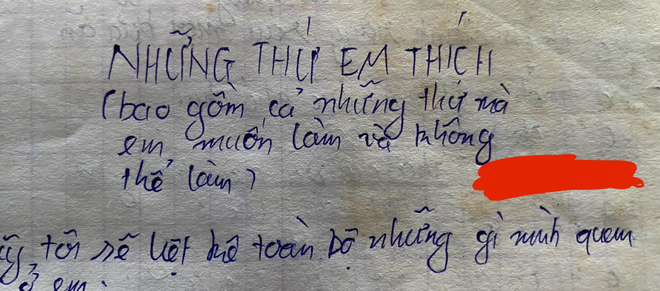 NHỮNG THỨ EM THÍCH
(bao gồm cả những thứ mà
em muốn làm và không
thể làm)
tôi sẽ liệt kê toàn bộ những gì mình quen
ở em: